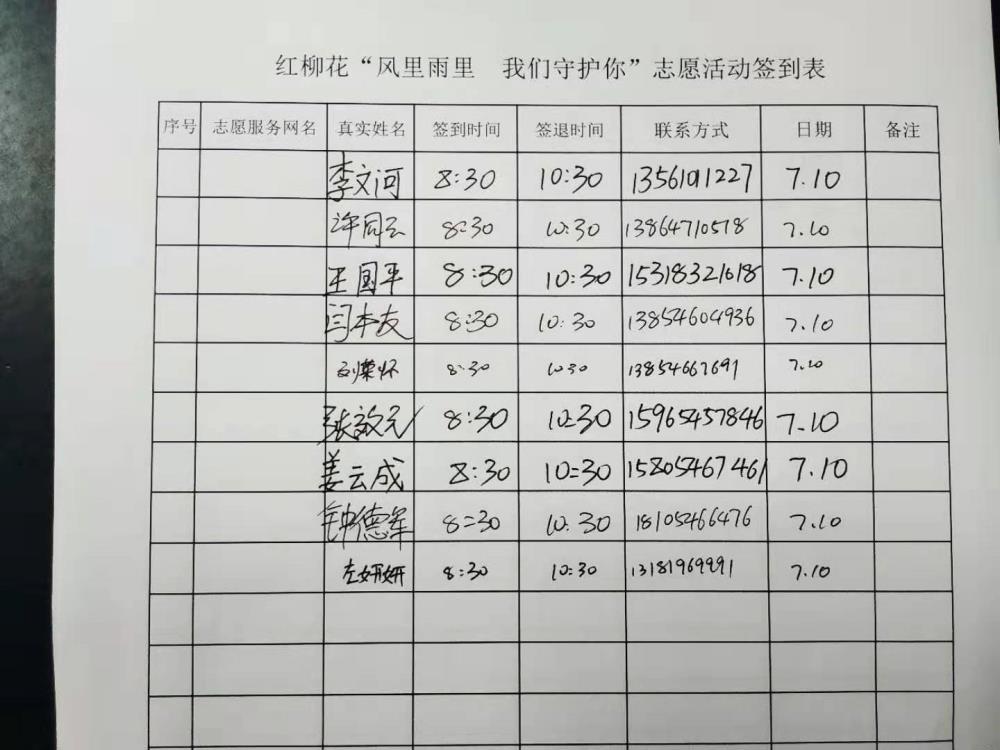 红柳花“风里雨里 我们守护你”志愿活动签到表
序号 志愿服务网名 真实姓名 签到时间 签退时间 联系方式 日期 备注
李文河 8:30 10:30 13561011227 7.10
许同云 8:30 10:30 13864710518 7.10
王国平 8:30 10:30 15318321618 7.10
闫本友 8:30 10:30 13854604936 7.10
刘荣怀 8:30 10:30 13854667691 7.10
张效元 8:30 10:30 15965457846 7.10
姜云成 8:30 10=30 15805467461 7.10
钟德军 8=30 10:30 18105466476 7.10
左妍妍 8:30 10:30 13181969991 7.10